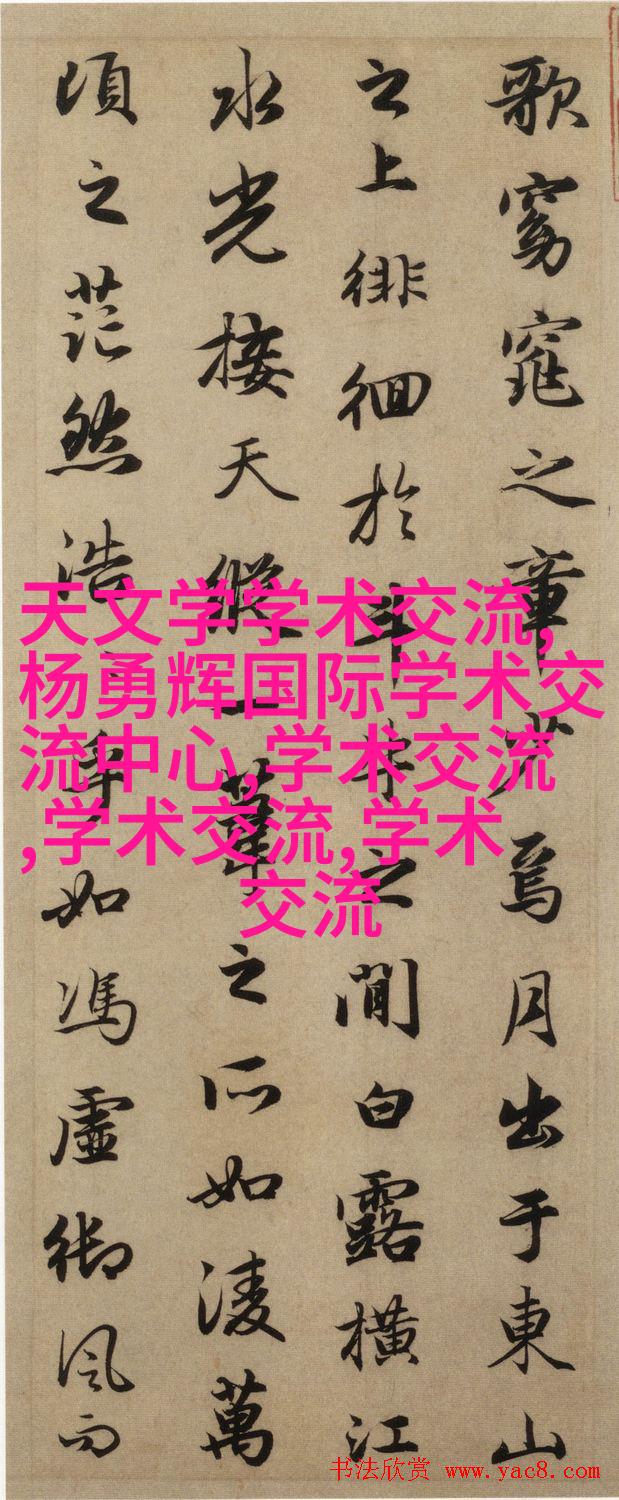 歌窈窕之章少焉月出于東山
之上徘徊於斗牛之間白露橫江
水光接天縱一葦之所如淩萬
頃之茫然浩〻乎如馮虛御風而
天文学学术交流,
杨勇辉国际学术交
流中心,学术交流
,学术交流,学术
交流
书法欣赏 www.yac8.com